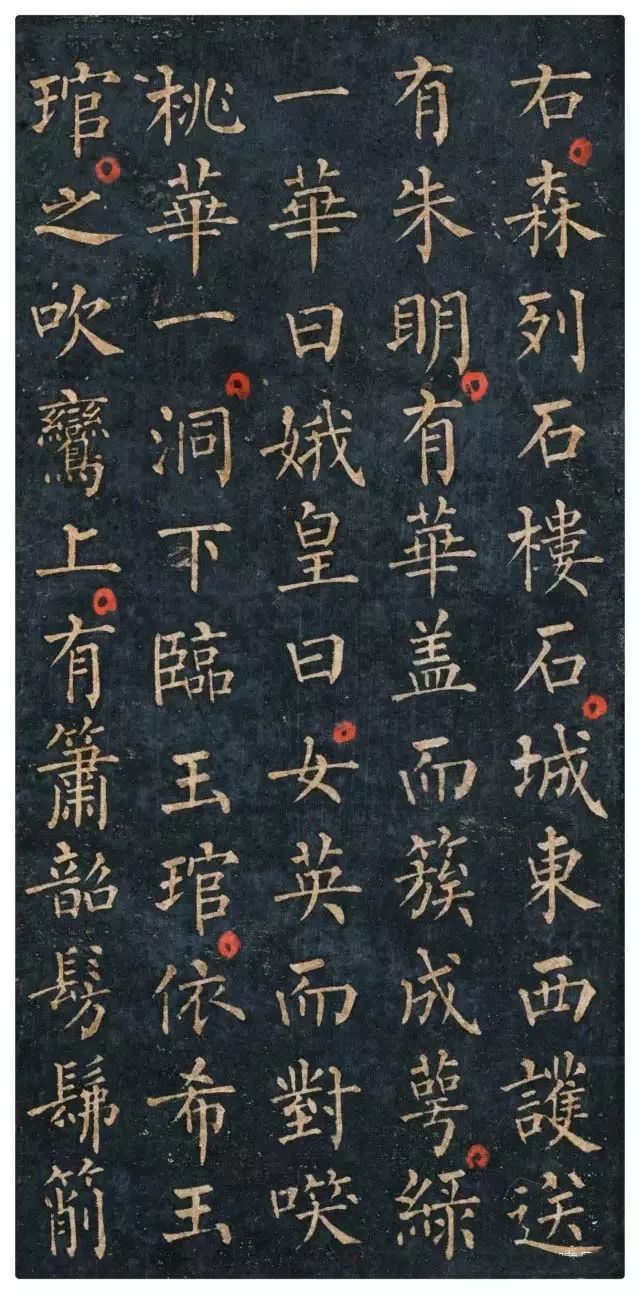 右森列石樓石城東西護送
有朱明有華盖而簇成萼綠
一華曰娥皇曰女英而對𥬇
桃華一洞下臨玉琯依希玉
琯之吹鸞上有簫韶髣髴箾